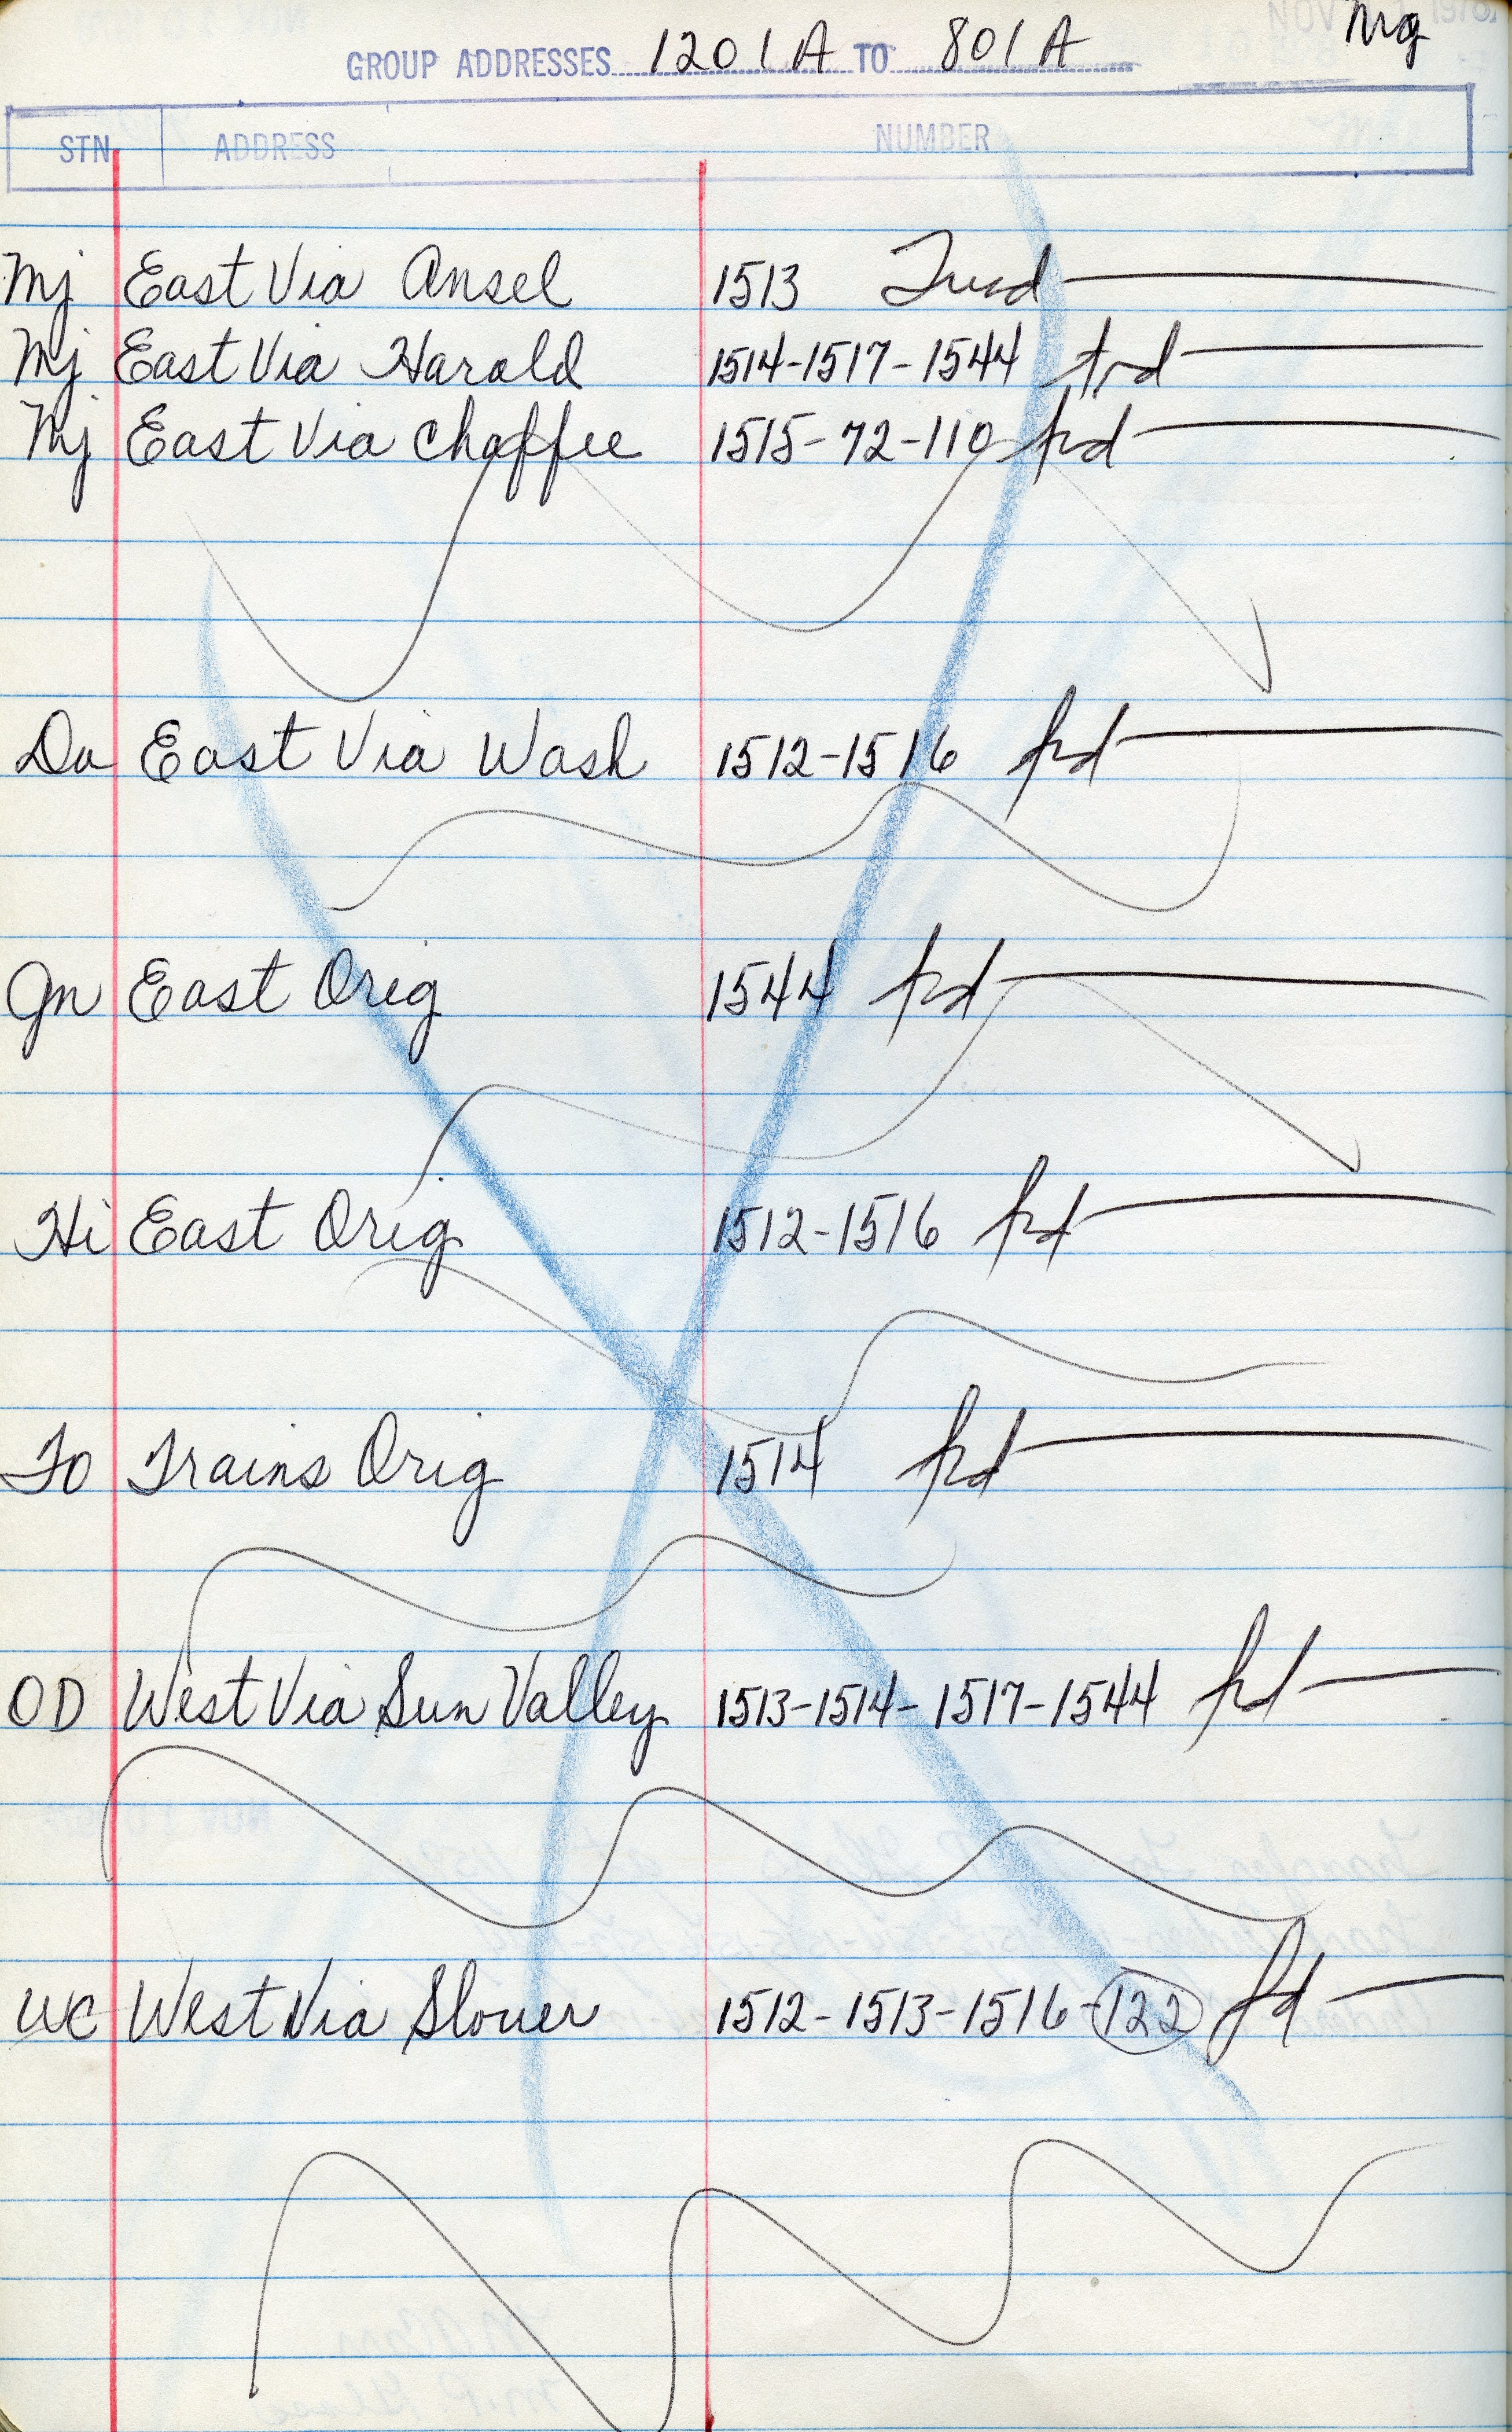 Mg
GROUP ADDRESSES 1201A TO 801A
STN ADDRESS NUMBER
Mj East Via Ansel 1513
Mj East Via Harold 1514-1517-1544
Mj East Via Chaffee 1515-72-110
Da East Via Wash 1512-1516
Gn East Orig 1544
Hi East Orig 1512-1516
To Trains Orig 1514
OD West Via Sun Valley 1513-1514-1517-1544
WC West Via Slover 1512-1513-1516-122